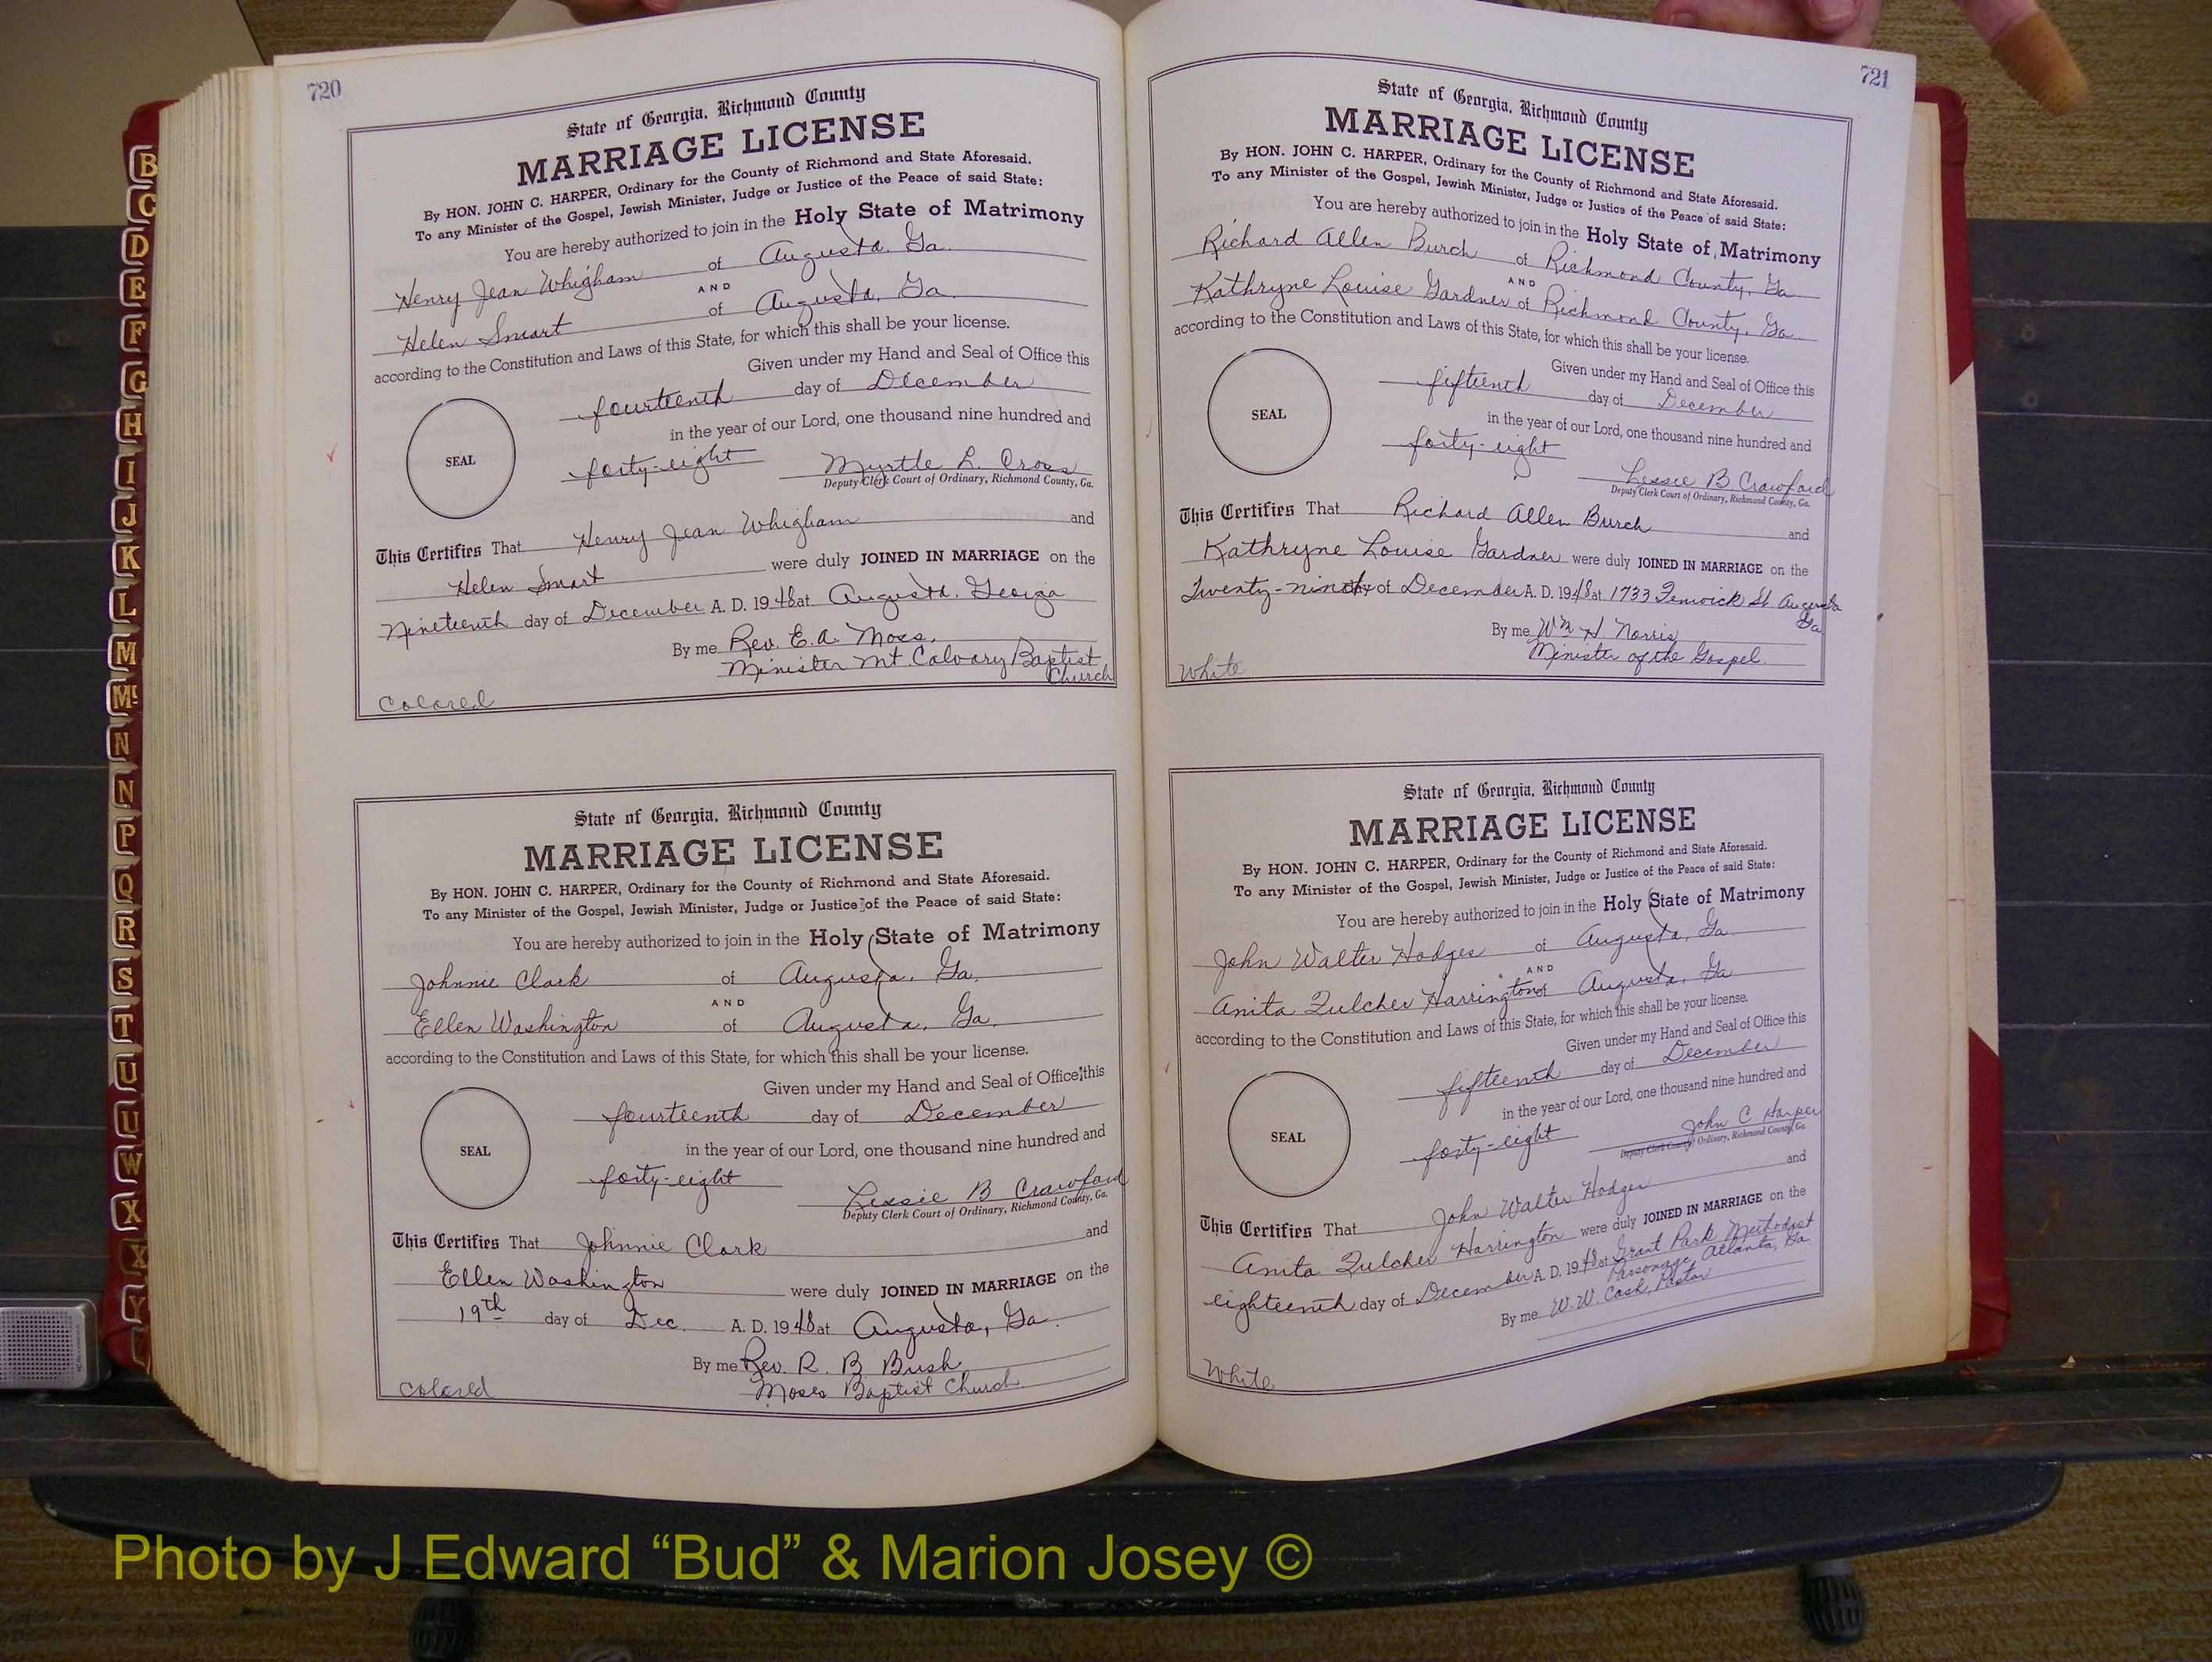 720
State of Georgia, Richmond County
MARRIAGE LICENSE
By HON. JOHN C. HARPER, Ordinary for the County of Richmond and State Aforesaid.
To any Minister of the Gospel, Jewish Minister, Judge or Justice of the Peace of said State:
You are hereby authorized to join in the Holy State of Matrimony
Henry Jean Whigham of Augusta, Ga.
AND
Helen Smart of Augusta, Ga.
according to the Constitution and Laws of this State, for which this shall be your license.
Given under my Hand and Seal of Office this
fourteenth day of December
in the year of our Lord, one thousand nine hundred and
SEAL
forty-eight Myrtle L. Cross
Deputy Clerk Court of Ordinary, Richmond County, Ga.
This Certifies That Henry Jean Whigham and
Helen Smart were duly JOINED IN MARRIAGE on the
Nineteenth day of December A. D. 1948 at Augusta, Georgia
By me Rev. E. A. Moss,
Minister Mt Calvary Baptist
Church
Colored
State of Georgia, Richmond County
MARRIAGE LICENSE
By HON. JOHN C. HARPER, Ordinary for the County of Richmond and State Aforesaid.
To any Minister of the Gospel, Jewish Minister, Judge or Justice of the Peace of said State:
You are hereby authorized to join in the Holy State of Matrimony
Johnnie Clark of Augusta, Ga.
AND
Ellen Washington of Augusta, Ga.
according to the Constitution and Laws of this State, for which this shall be your license.
Given under my Hand and Seal of Office this
fourteenth day of December
in the year of our Lord, one thousand nine hundred and
SEAL
forty-eight Lessie B Crawford
Deputy Clerk Court of Ordinary, Richmond County, Ga.
This Certifies That Johnnie Clark and
Ellen Washington were duly JOINED IN MARRIAGE on the
19th day of Dec. A. D. 1948 at Augusta, Ga.
By me Rev. R. B. Bush
Moses Baptist Church
Colored
721
State of Georgia, Richmond County
MARRIAGE LICENSE
By HON. JOHN C. HARPER, Ordinary for the County of Richmond and State Aforesaid.
To any Minister of the Gospel, Jewish Minister, Judge or Justice of the Peace of said State:
You are hereby authorized to join in the Holy State of Matrimony
Richard Allen Burch of Richmond County, Ga
AND
Kathryne Louise Gardner of Richmond County, Ga.
according to the Constitution and Laws of this State, for which this shall be your license.
Given under my Hand and Seal of Office this
fifteenth day of December
in the year of our Lord, one thousand nine hundred and
SEAL
forty-eight
Lessie B Crawford
Deputy Clerk Court of Ordinary, Richmond County, Ga.
This Certifies That Richard Allen Burch and
Kathryne Louise Gardner were duly JOINED IN MARRIAGE on the
Twenty-ninth of December A. D. 1948 at 1733 Fenwick St. Augusta
Ga
By me Wm H. Norris
Minister of the Gospel.
White
State of Georgia, Richmond County
MARRIAGE LICENSE
By HON. JOHN C. HARPER, Ordinary for the County of Richmond and State Aforesaid.
To any Minister of the Gospel, Jewish Minister, Judge or Justice of the Peace of said State:
You are hereby authorized to join in the Holy State of Matrimony
John Walter Hodges of Augusta, Ga
AND
Anita Fulcher Harrington of Augusta, Ga
according to the Constitution and Laws of this State, for which this shall be your license.
Given under my Hand and Seal of Office this
fifteenth day of December
in the year of our Lord, one thousand nine hundred and
SEAL
forty-eight John C Harper
Deputy Clerk Court of Ordinary, Richmond County, Ga.
This Certifies That John Walter Hodges and
Anita Fulcher Harrington were duly JOINED IN MARRIAGE on the
eighteenth day of December A. D. 1948 at Grant Park Methodist
Parsonage, Atlanta, Ga
By me W. W. Cash, Pastor
White
B
C
D
E
F
G
H
I
J
K
L
M
Mc
N
N
P
Q
R
S
T
U
U
W
X
X
Y
Photo by J Edward “Bud” & Marion Josey ©